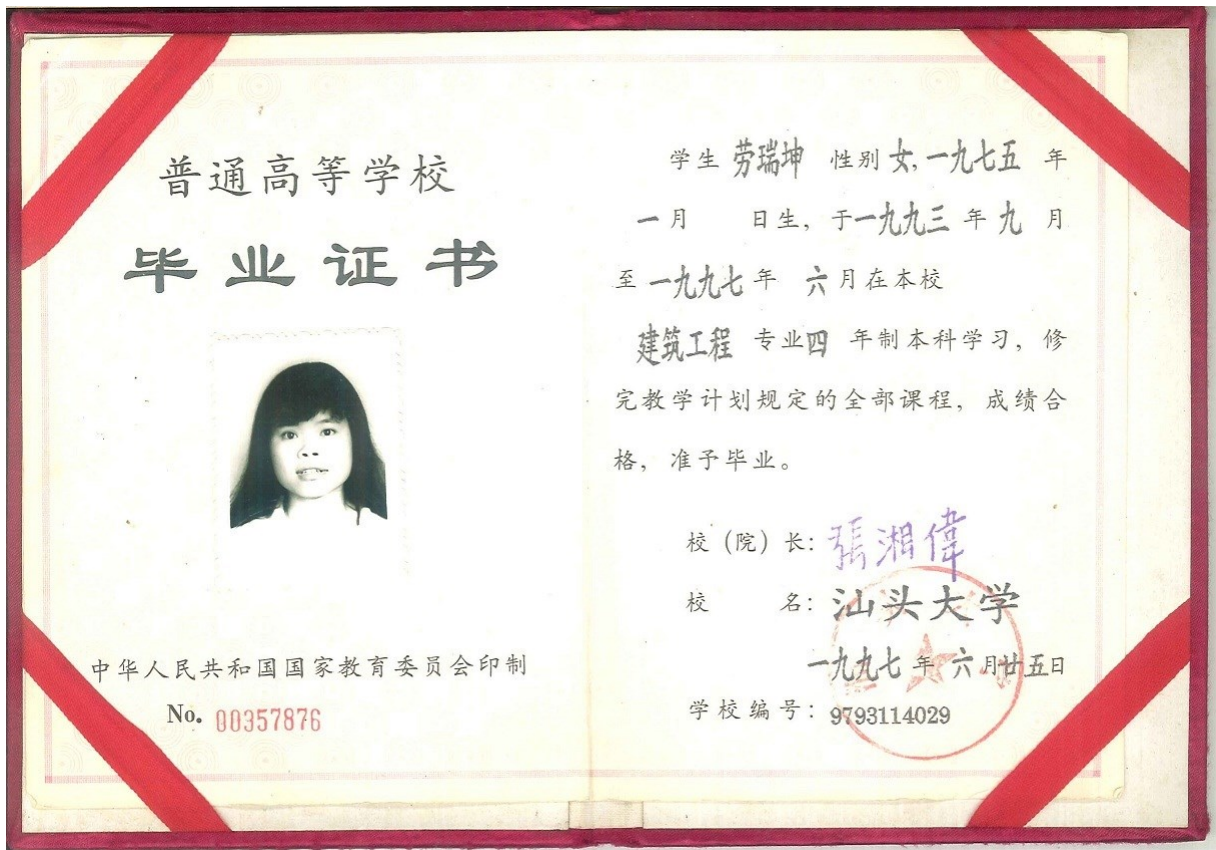 普通高等学校
毕业证书
中华人民共和国国家教育委员会印制
No. 00357876
学生 劳瑞坤 性别 女, 一九七五 年
一月 日生, 于一九九三 年 九 月
至 一九九七 年 六 月在本校
建筑工程 专业四 年制本科学习, 修
完教学计划规定的全部课程, 成绩合
格, 准予毕业。
校 (院) 长: 張湘偉
校 名: 汕头大学
一九九七 年 六 月廿五日
学校编号: 9793114029